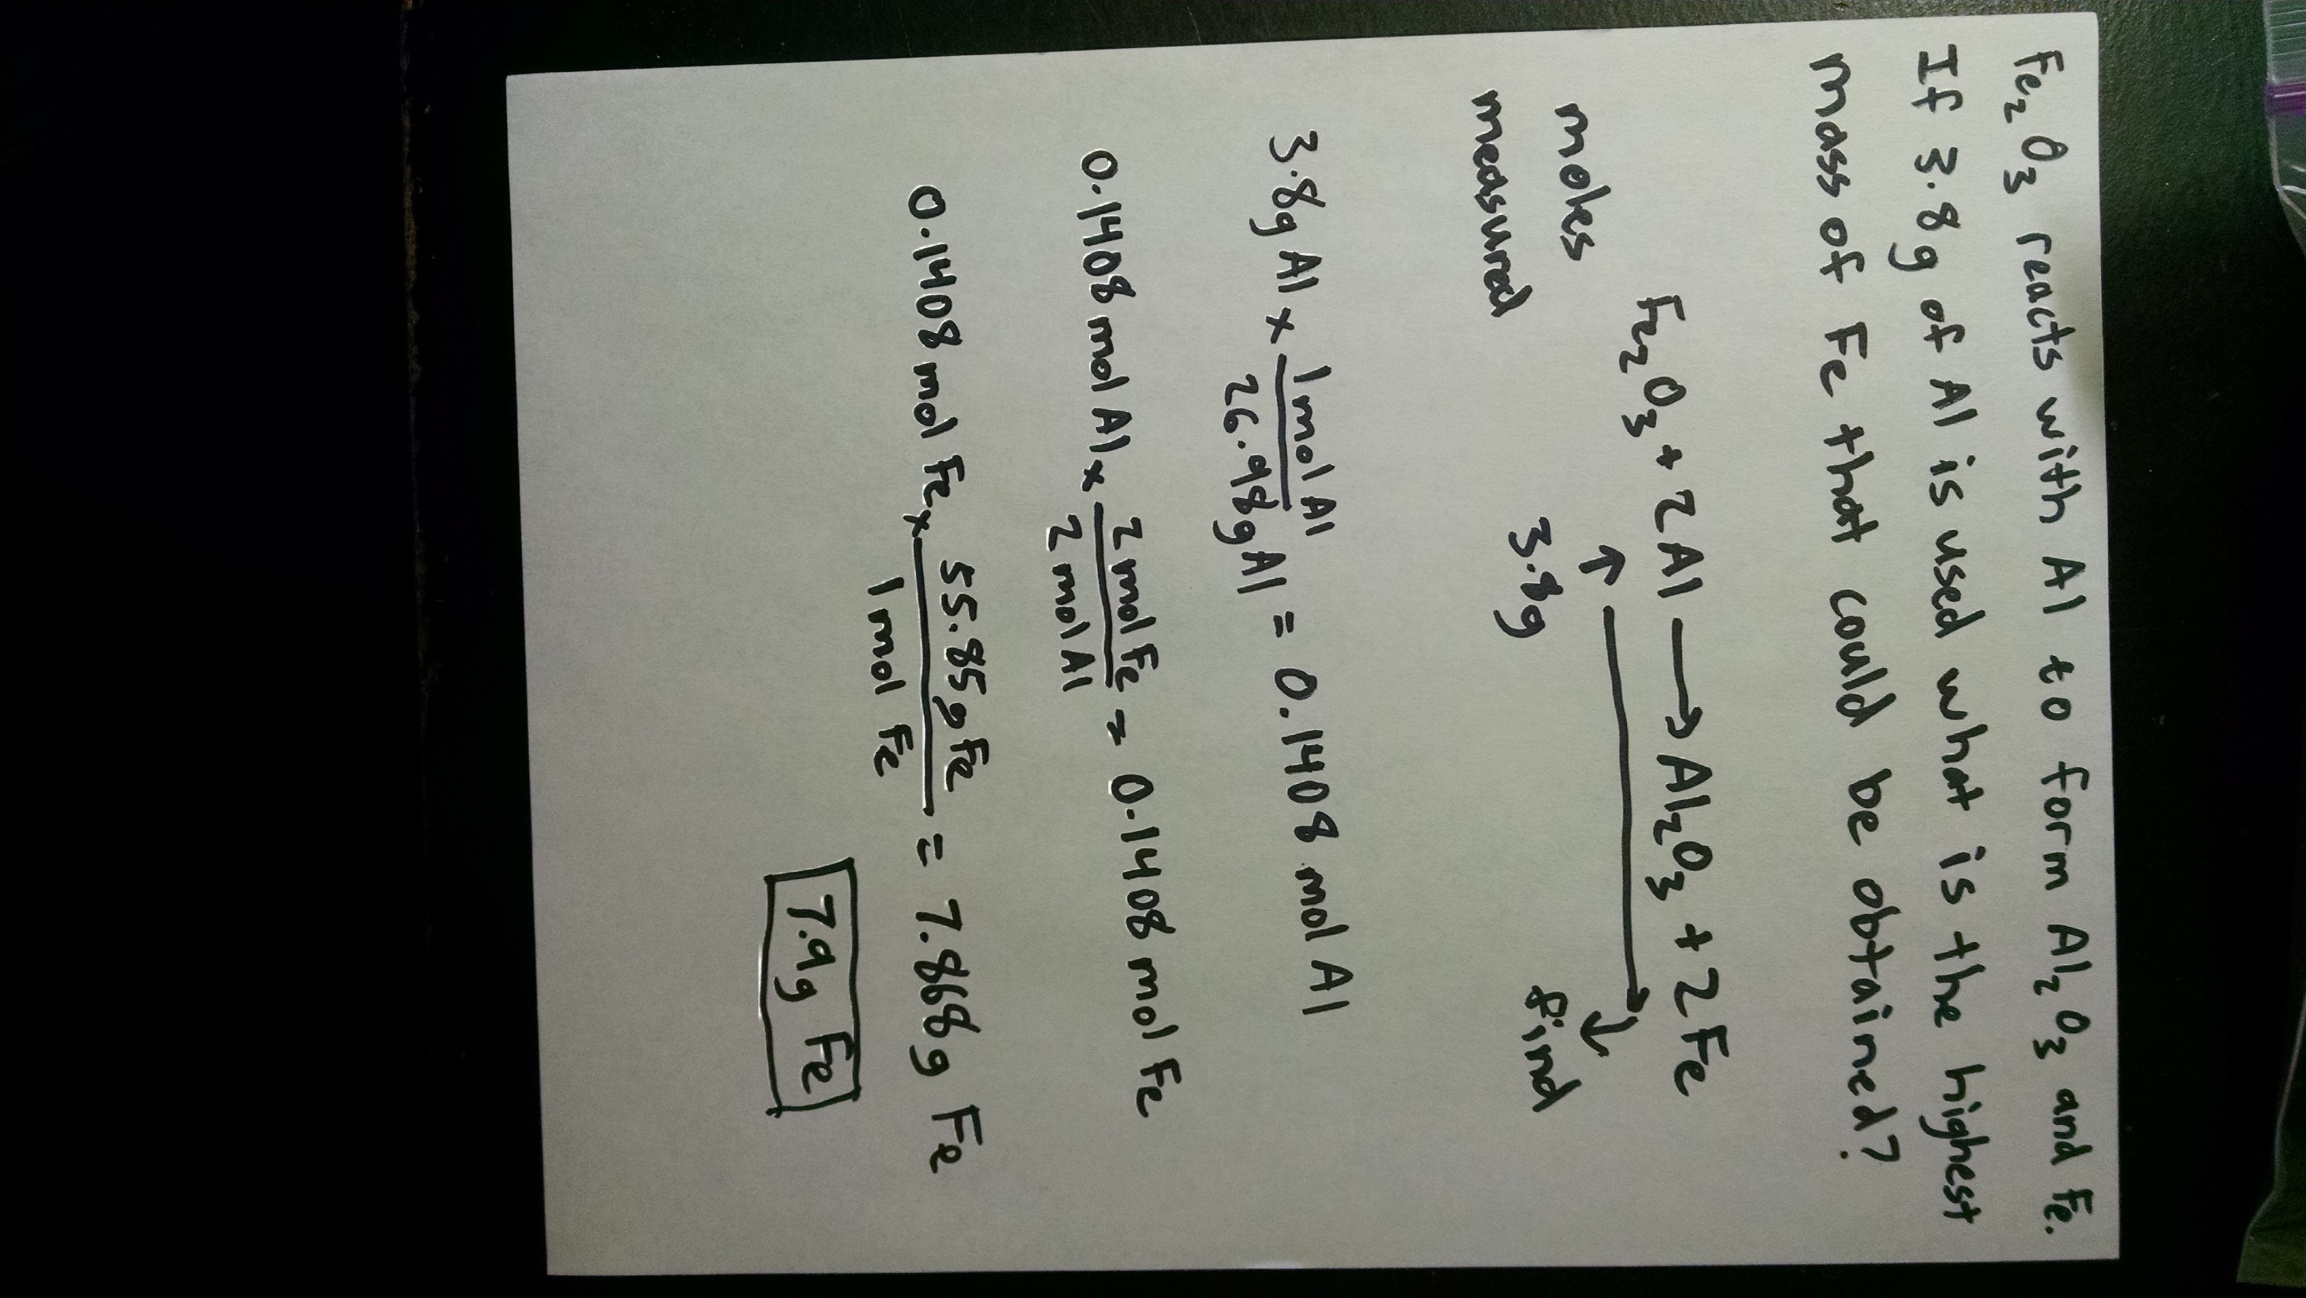 Fe₂O₃ reacts with Al to form Al₂O₃ and Fe.
If 3.8g of Al is used what is the highest
mass of Fe that could be obtained?
Fe₂O₃ + 2Al → Al₂O₃ + 2Fe
moles
measured 3.8g find
3.8g Al x 1 mol Al / 26.98g Al = 0.1408 mol Al
0.1408 mol Al x 2 mol Fe / 2 mol Al = 0.1408 mol Fe
0.1408 mol Fe x 55.85g Fe / 1 mol Fe = 7.868g Fe
7.9g Fe